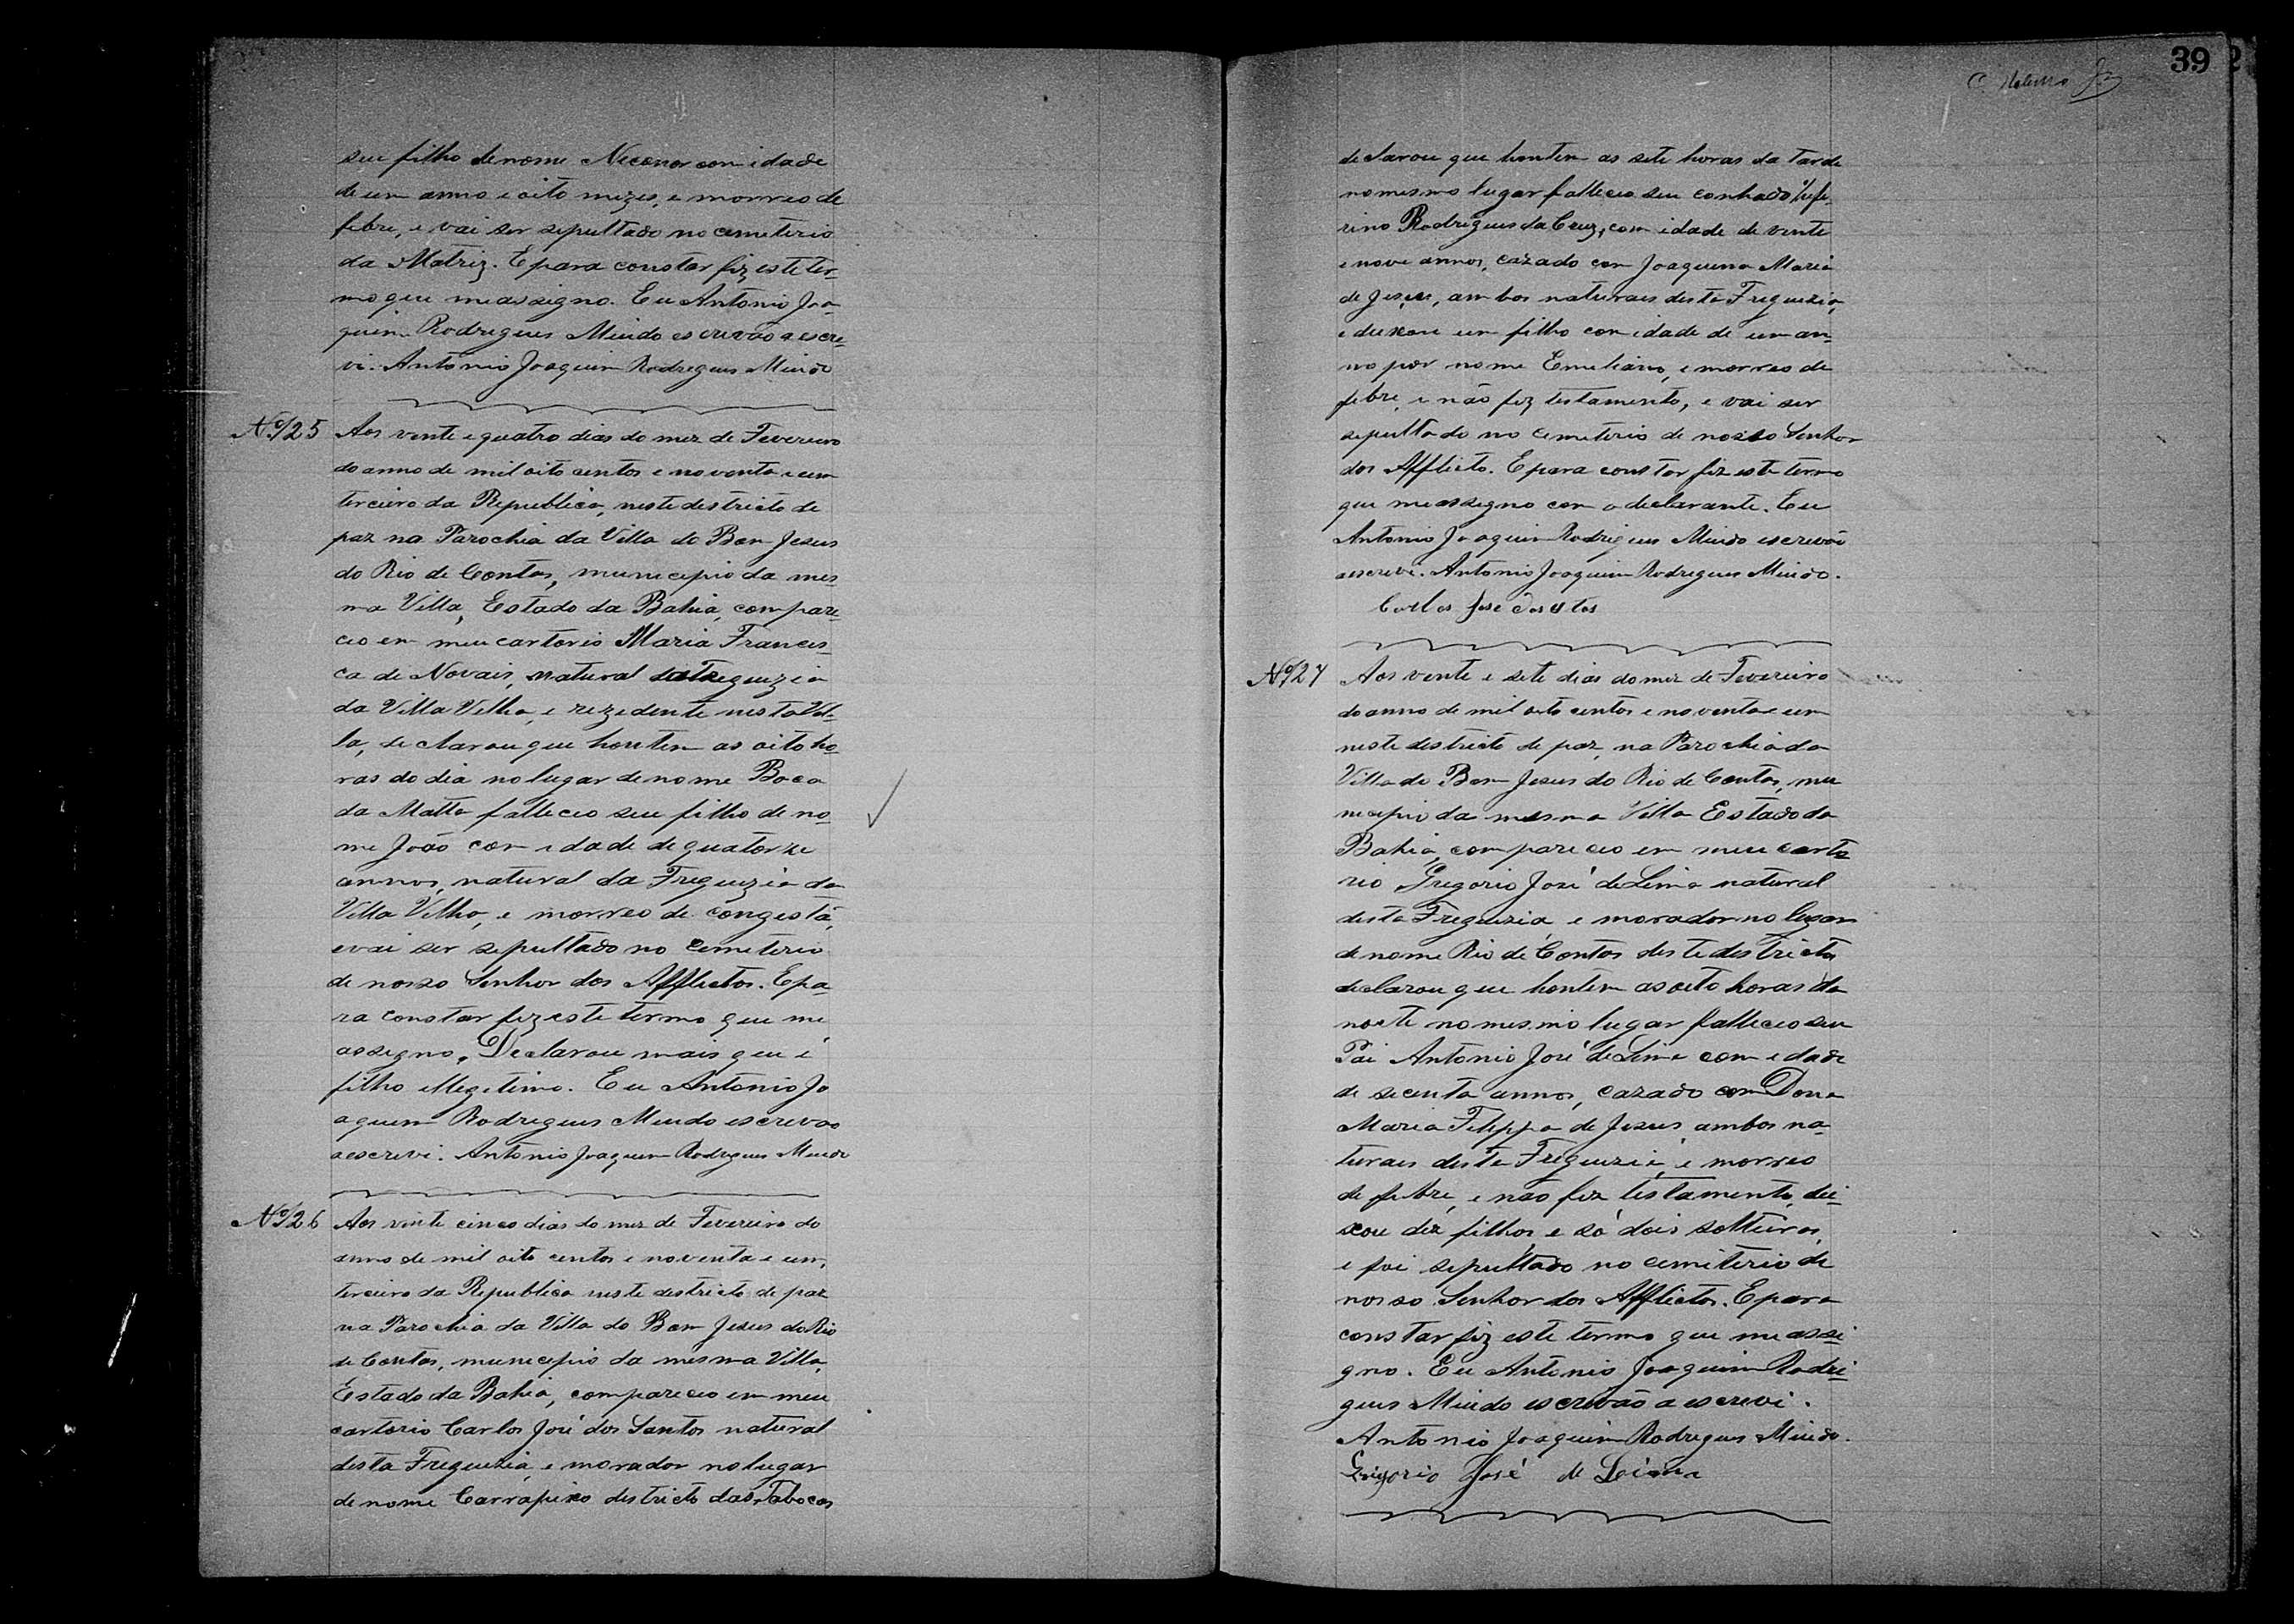 seu filho de nome Neconor com idade
de um anno e oito mezes, e morreo de
febre, e vai ser sepultado no cemeterio
da Matriz. E para constar fiz este ter-
mo que me assigno. Eu Antonio Joa-
quim Rodrigues Miudo escrivão a escre-
vi. Antonio Joaquim Rodrigues Miudo
Nº 125 Aos vente e quatro dias do mez de Fevereiro
do anno de mil oito centos e noventa e um
terceiro da Republica, neste destricto de
paz na Parochia da Villa do Bom Jesus
do Rio de Contas, municepio da mes-
ma Villa, Estado da Bahia, compare-
ceo em meu cartorio Maria Francis-
ca de Novais, natural da Freguezia
da Villa Velha, e rezedente nesta Vil-
la, declarou que hontem as oito ho-
ras do dia no lugar de nome Boca
da Matta falleceo seu filho de no-
me João com idade de quatorze
annos, natural da Freguezia da
Villa Velha, e morreo de congestã,
e vai ser sepultado no Cemeterio
de nosso Senhor dos Afflictos. E pa-
ra constar fiz este termo que me
assegno. Declarou mais que é
filho ellegetimo. Eu Antonio Jo
aquim Rodregues Miudo escrevao
a escrevi. Antonio Joaquim Rodrigues Miudo
Nº 126 Aos vinte cinco dias do mez de Fevereiro do
anno de mil oito centos e noventa e um,
terceiro da Republica neste destricto de paz
na Parochia da Villa do Bom Jesus do Rio
de Contas, municepio da mesma Villa,
Estado da Bahia, compareceo em meu
cartorio Carlos José dos Santos natural
desta Freguezia, e morador no lugar
de nome Carrapixo destricto das Tabocas
39
declarou que hontem as sete horas da tarde
no mesmo lugar falleceo seu conhado
rino Rodrigues da Cruz, com idade de vente
e nove annos, cazado com Joaquina Maria
de Jesus, ambos naturais desta Freguezia,
e deixou um filho com idade de um an-
no por nome Emeliano, e morreo de
febre, e não fez testamento, e vai ser
sepultado no Cemeterio de nosso Senhor
dos Afflicto. E para constar fiz este termo
que me assegno com o declarante. Eu
Antonio Joaquim Rodrigues Miudo escrevão
a escrevi. Antonio Joaquim Rodrigues Miudo.
Carlos José dos
Nº 127 Aos vente e sete dias do mez de Fevereiro
do anno de mil oito centos e noventa e um
neste destricto de paz, na Parochia da
Villa do Bom Jesus do Rio de Contas, mu
necepio da mesma Villa Estado da
Bahia, compareceo em meu carto
rio Gregorio José de Lima natural
desta Freguezia, e morador no lugar
de nome Rio de Contas deste destricto
declarou que hontem as oito horas da
noete no mesmo lugar falleceo seu
Pai Antonio José de Lima com edade
de secenta annos, cazado com Dona
Maria Felippa de Jesus, ambos na-
turaes desta Freguezia, e morreo
de febre, e não fez testamento, dei-
xou dez filhos, e só dois solteiros,
e foi sepultado no cemiterio de
nosso Senhor dos Afflictos. E para
constar fiz este termo que me assi-
gno. Eu Antonio Joaquim Rodri-
gues Miudo escrevão a escrevi.
Antonio Joaquim Rodrigues Miudo.
Grigorio José de Loima